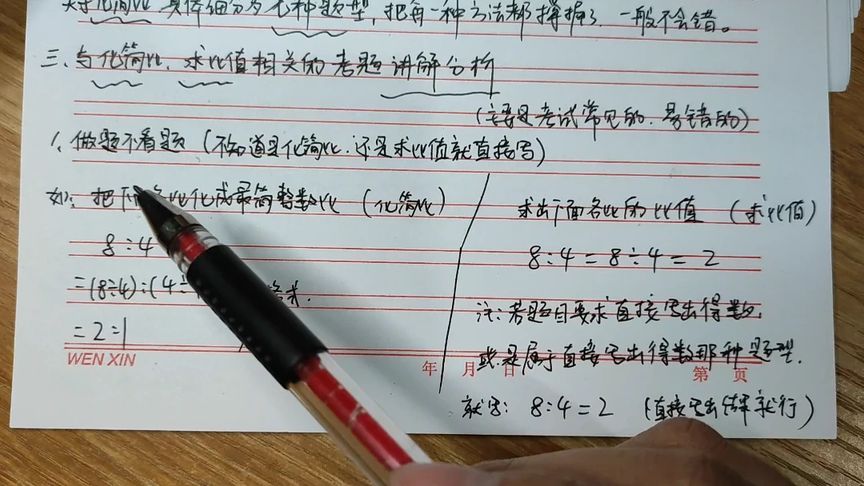 关于化简比 具体细分为七种题型,把每一种方法都掌握了,一般不会错。
三、与化简比、求比值相关的考题讲解分析
(主要是考试常见的、易错的)
1、做题不看题(不知道是化简比.还是求比值就直接写)
如: 把下面各比化成最简整数比 (化简比)
8:4
=(8÷4):(4÷
=2:1
求出下面各比的比值 (求比值)
8:4=8÷4=2
注:若题目要求直接写出得数,
或是属于直接写出得数那种题型.
就写: 8:4=2 (直接写出结果就行)
WEN XIN
年 月 日
第 页